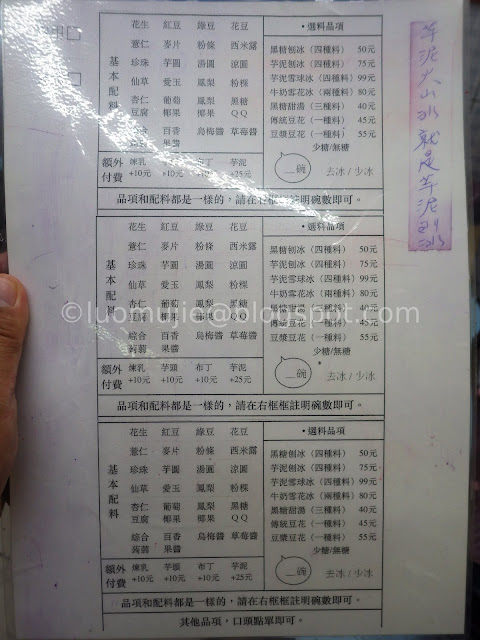 花生 紅豆 綠豆 花豆
薏仁 麥片 粉條 西米露
珍珠 芋圓 湯圓 涼圓
仙草 愛玉 鳳梨 粉粿
杏仁豆腐 葡萄椰果 鳳梨椰果 黑糖QQ
綜合蒟蒻 百香果醬 烏梅醬 草莓醬
基本配料
額外付費
煉乳+10元 布丁+10元 芋泥+25元
•選料品項
黑糖刨冰（四種料） 50元
芋泥刨冰（四種料） 75元
芋泥雪球冰（四種料） 99元
牛奶雪花冰（兩種料） 80元
黑糖甜湯（三種料） 40元
傳統豆花（一種料） 45元
豆漿豆花（一種料） 55元
少糖/無糖
_碗
去冰/少冰
品項和配料都是一樣的，請在右框框註明碗數即可。
芋泥火山冰就是芋泥刨冰
花生 紅豆 綠豆 花豆
薏仁 麥片 粉條 西米露
珍珠 芋圓 湯圓 涼圓
仙草 愛玉 鳳梨 粉粿
杏仁豆腐 葡萄椰果 鳳梨椰果 黑糖QQ
綜合蒟蒻 百香果醬 烏梅醬 草莓醬
基本配料
額外付費
煉乳+10元 芋頭+10元 布丁+10元 芋泥+25元
•選料品項
黑糖刨冰（四種料） 50元
芋泥刨冰（四種料） 75元
芋泥雪球冰（四種料） 99元
牛奶雪花冰（兩種料） 80元
黑糖甜湯（三種料） 40元
傳統豆花（一種料） 45元
豆漿豆花（一種料） 55元
少糖/無糖
_碗
去冰/少冰
品項和配料都是一樣的，請在右框框註明碗數即可。
©luongjie@blogspot.com
花生 紅豆 綠豆 花豆
薏仁 麥片 粉條 西米露
珍珠 芋圓 湯圓 涼圓
仙草 愛玉 鳳梨 粉粿
杏仁豆腐 葡萄椰果 鳳梨椰果 黑糖QQ
綜合蒟蒻 百香果醬 烏梅醬 草莓醬
基本配料
額外付費
煉乳+10元 芋頭+10元 布丁+10元 芋泥+25元
•選料品項
黑糖刨冰（四種料） 50元
芋泥刨冰（四種料） 75元
芋泥雪球冰（四種料） 99元
牛奶雪花冰（兩種料） 80元
黑糖甜湯（三種料） 40元
傳統豆花（一種料） 45元
豆漿豆花（一種料） 55元
少糖/無糖
_碗
去冰/少冰
品項和配料都是一樣的，請在右框框註明碗數即可。
其他品項，口頭點單即可。